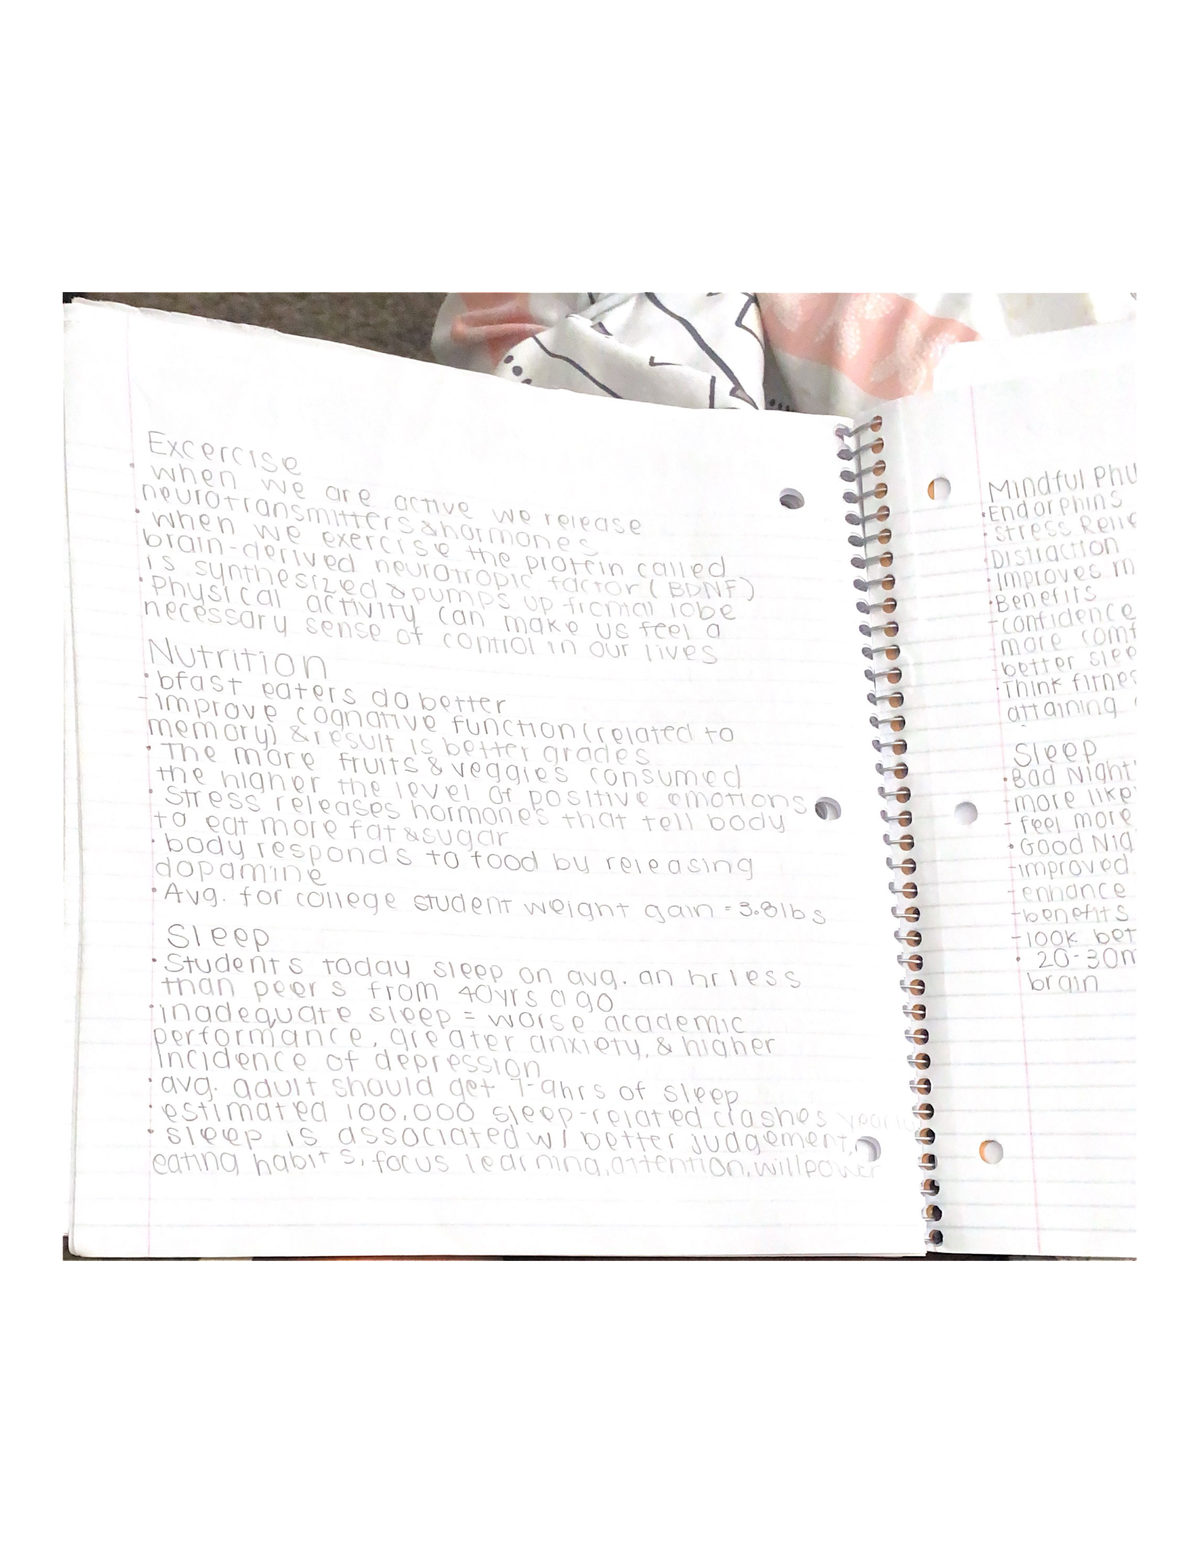 Excercise
• when we are active we release
neurotransmitters & hormones
• when we exercise the protein called
brain-derived neurotropic factor (BDNF)
is synthesized & pumps up frontal lobe
• Physical activity can make us feel a
necessary sense of control in our lives
Nutrition
• bfast eaters do better
- improve cognative function (related to
memory) & result is better grades
• The more fruits & veggies consumed
the higher the level of positive emotions
• Stress releases hormones that tell body
to eat more fat & sugar
• body responds to food by releasing
dopamine
• Avg. for college student weight gain = 3.8lbs
Sleep
• Students today sleep on avg. an hr less
than peers from 40yrs ago
• inadequate sleep = worse academic
performance, greater anxiety, & higher
incidence of depression
• avg. adult should get 7-9hrs of sleep
• estimated 100,000 sleep-related crashes yearly
• sleep is associated w/ better judgement,
eating habits, focus learning, attention, willpower
Mindful Phy
• Endorphins
• Stress Relie
Distraction
• Improves m
• Benefits
- confidence
more comf
better slee
• Think fitnes
attaining
Sleep
• Bad Night'
- more like
- feel more
• Good Nig
- improved
- enhance
- benefits
- 100k bet
• 20-30m
brain